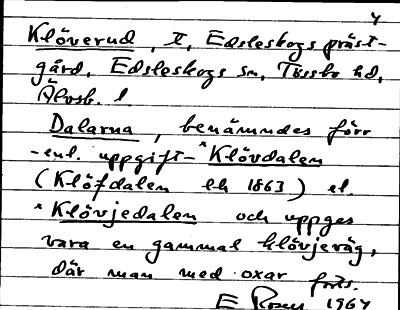 4
Klöverud, I, Edsleskogs präst-
gård, Edsleskogs sn, Tössbo hd,
Älvsb. l.
Dalarna, benämndes förr
-enl. uppgift- *Klövdalen
(Klöfdalen ek 1863) el.
*Klövjedalen och uppges
vara en gammal klövjeväg,
där man med oxar forts.
E Rosen 1964